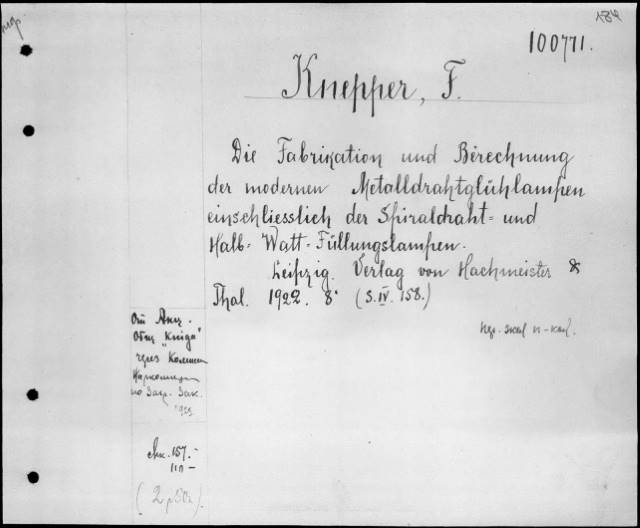 184
100771.
Knepper, F.
Die Fabrikation und Berechnung
der modernen Metalldrahtglühlampen
einschliesslich der Spiraldraht= und
Halb= Watt=Füllungslampen.
Leipzig. Verlag von Hachmeister &
Thal. 1922. 8° (S. IV. 158.)
От Акц.
Общ. "Книга"
через
по Загр. Зак.